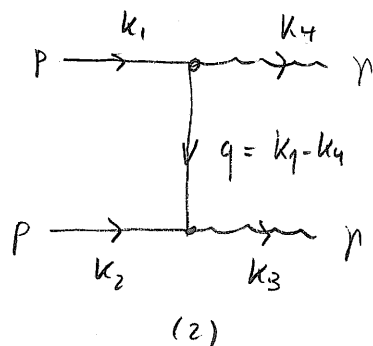 k₁ k₄
p γ
q = k₁-k₄
p γ
k₂ k₃
(2)